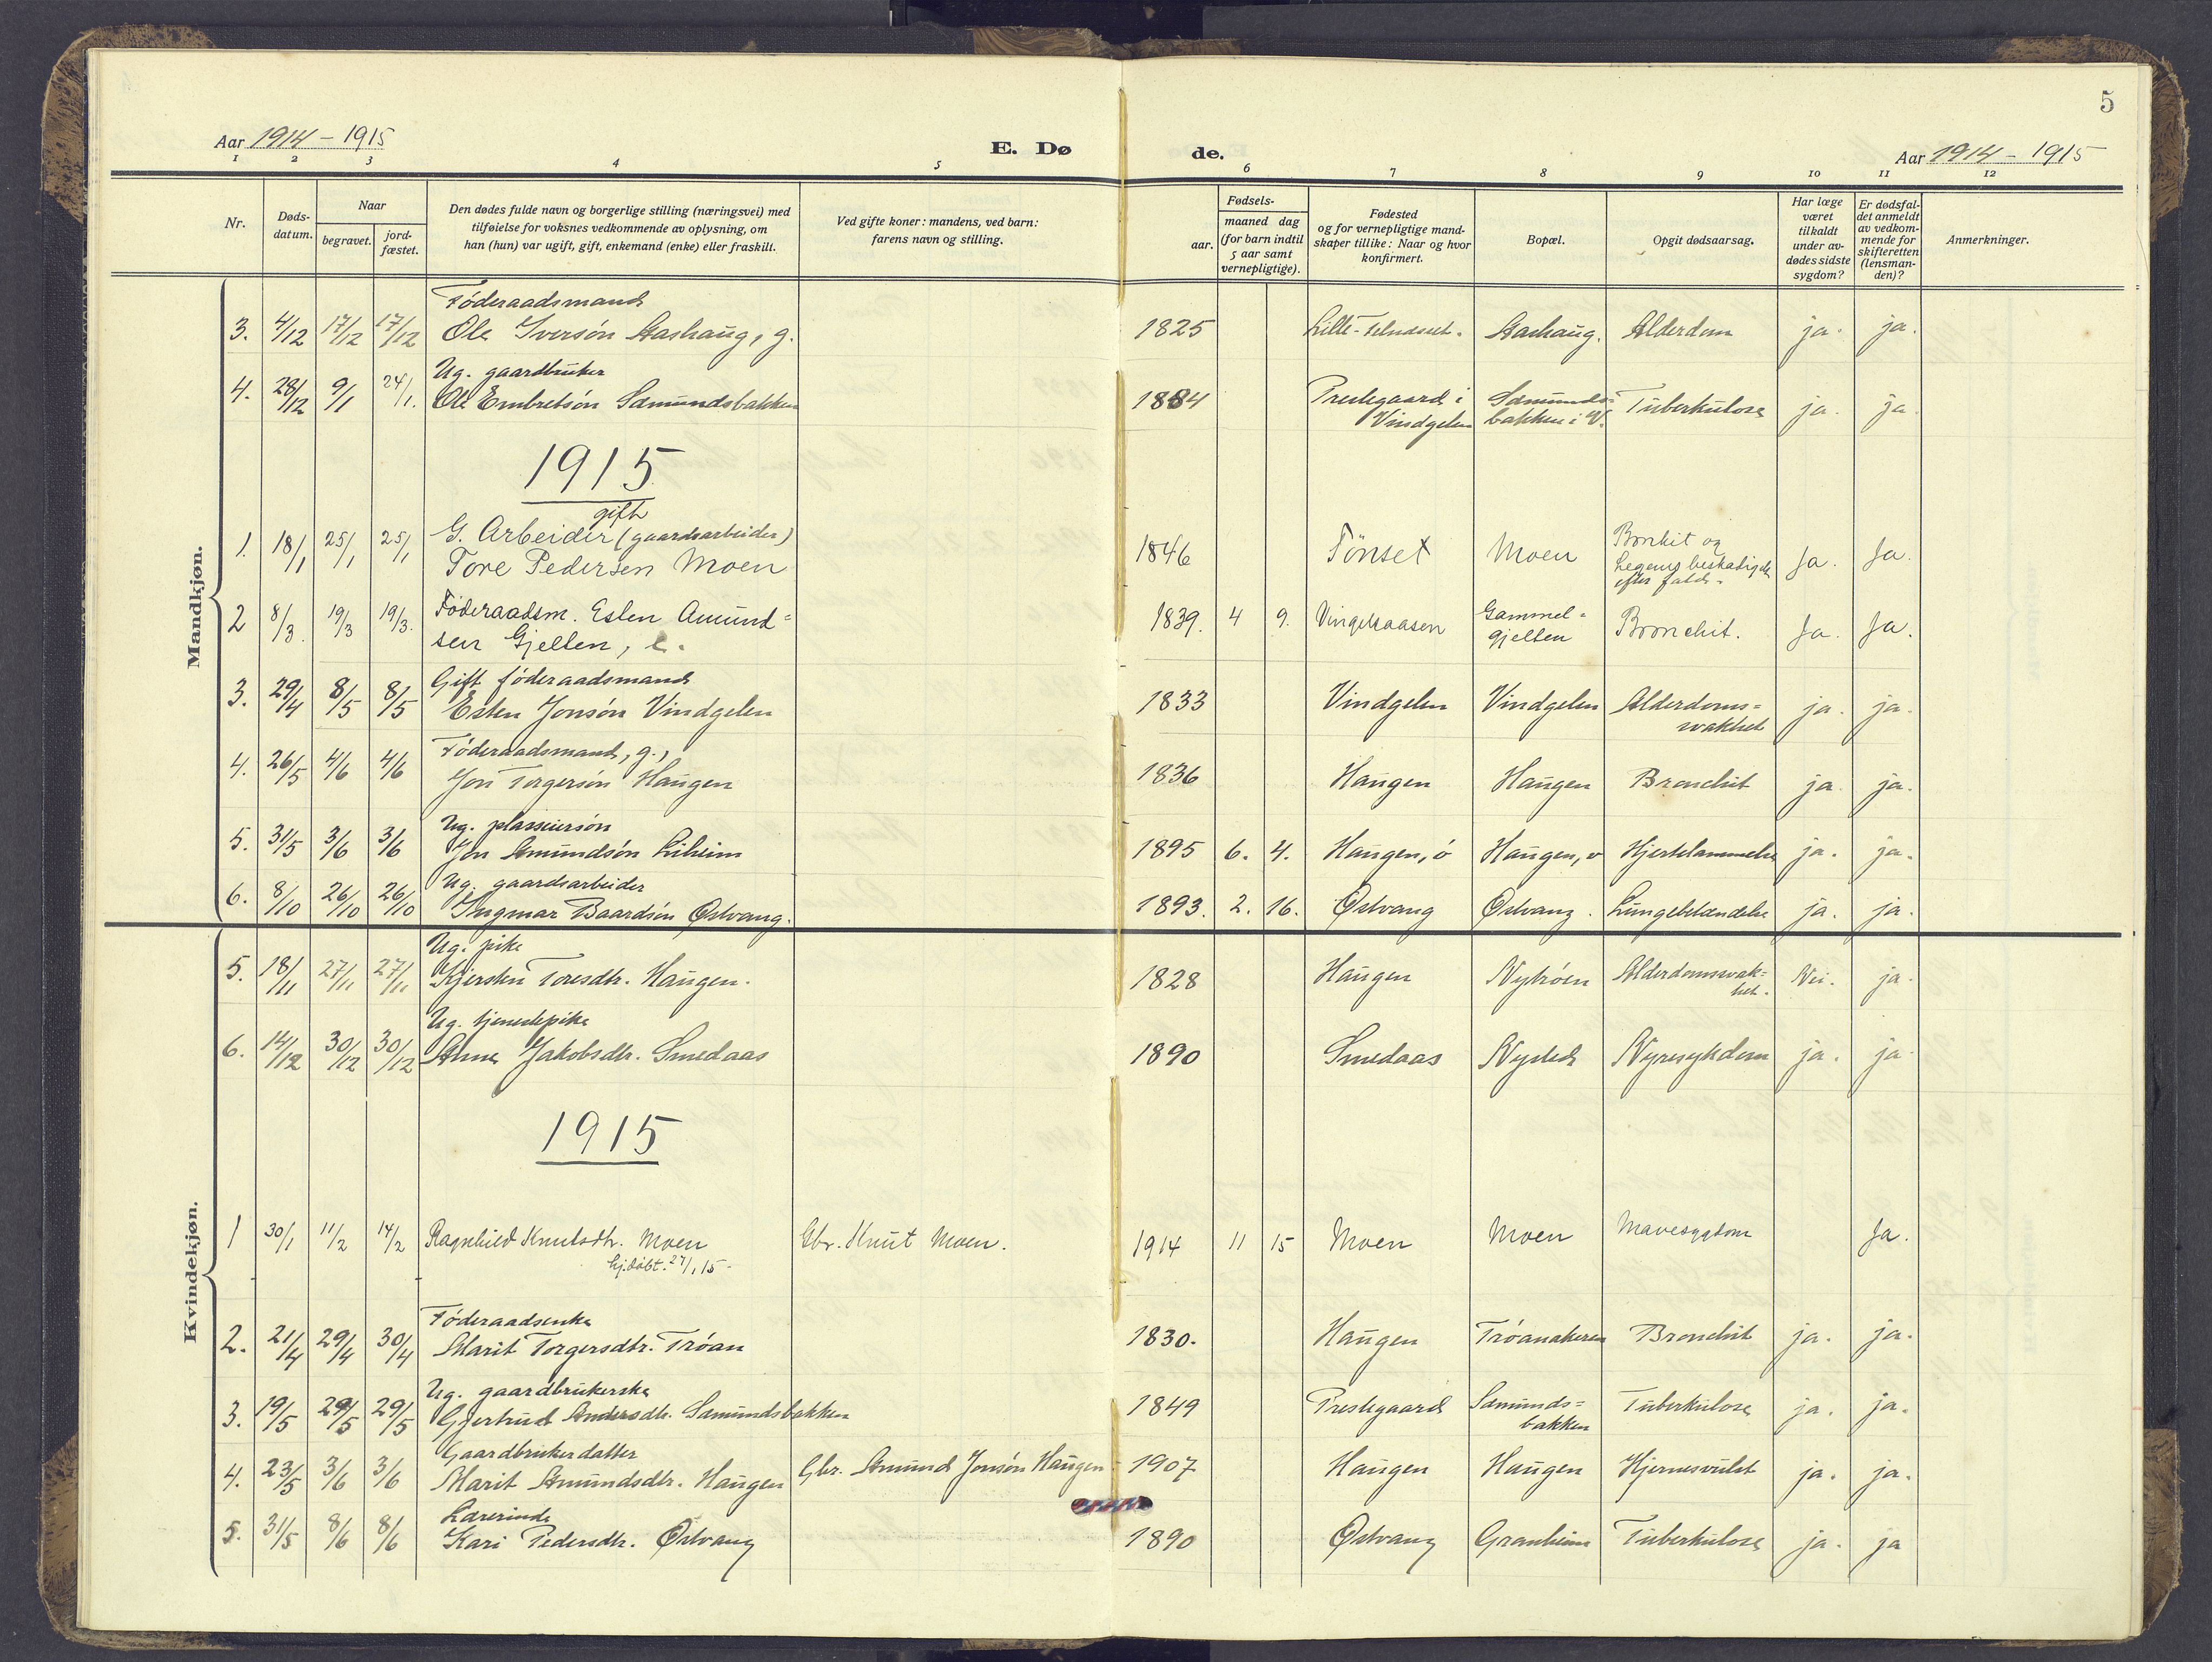 5
Aar 1914 – 1915
E. Dø
de.
Aar 1914 – 1915
1 2 3 4 5 6 7 8 9 10 11 12
Nr.
Døds-
datum.
Naar
begravet.
jord-
fæstet.
Den dødes fulde navn og borgerlige stilling (næringsvei) med
tilføielse for voksnes vedkommende av oplysning, om
han (hun) var ugift, gift, enkemand (enke) eller fraskilt.
Ved gifte koner: mandens, ved barn:
farens navn og stilling.
Fødsels-
aar.
maaned dag
(for barn indtil
5 aar samt
vernepligtige).
Fødested
og for vernepligtige mand-
skaper tillike: Naar og hvor
konfirmert.
Bopæl.
Opgit dødsaarsag.
Har læge
været
tilkaldt
under av-
dødes sidste
sygdom?
Er dødsfal-
det anmeldt
av vedkom-
mende for
skifteretten
(lensman-
den)?
Anmerkninger.
Mandkjøn.
Föderaadsmand
3. 4/12 17/12 17/12 Ole Iversön Aashaug, g. 1825 Lille-Telneset. Aashaug. Alderdom ja. ja.
Ug. gaardbruker
4. 28/12 9/1 24/1. Ole Embretsön Samundsbakken 1884 Prestegaard i Samunds-
Vindgelen bakken i V. Tuberkulose ja. ja.
1915
gift
G. Arbeider (gaardsarbeider)
1. 18/1 25/1 25/1 Tore Pedersen Moen 1846 Tönset Moen Bronkit og
Legems beskadigelse
efter fald. Ja. Ja.
2 8/3. 19/3 19/3. Föderaadsm. Esten Amund=
sen Gjelten, e. 1839. 4 9. Vingelsaasen Gammel=
gjelten Bronchit. Ja. Ja.
Gift föderaadsmand
3. 29/4 8/5 8/5 Esten Jonsön Vindgelen 1833 Vindgelen Vindgelen Alderdoms=
svakhet ja. ja.
Föderaadsmand, g.,
4. 26/5 4/6 4/6 Jon Torgersön Haugen 1836 Haugen Haugen Bronchit ja. ja.
Ug. plasseiersön
5. 31/5 3/6 3/6 Jon Amundsön Liheim 1895 6. 4. Haugen, ö Haugen, ö Hjertelammelse ja. ja.
Ug. gaardsarbeider
6. 8/10 26/10 26/10 Ingmar Baardsön Østvang. 1893. 2. 16. Østvang Østvang. Lungebetændelse ja. ja.
Kvindekjøn.
Ug. pike
5. 18/11 27/11 27/11 Kjersti Toresdtr. Haugen. 1828 Haugen Nytröen Alderdomsvak=
het. Nei. ja.
Ug. tjenestepike
6. 14/12 30/12 30/12 Anne Jakobsdtr. Smedaas 1890 Smedaas Nysted Nyresykdom ja. ja.
1915
1 30/1 11/2 14/2 Ragnhild Knutsdtr. Moen Gbr. Knut Moen. 1914 11 15 Moen Moen Mavesygdom Ja.
hj.döbt. 27/1 15.
Föderaadsenke
2. 21/4 29/4 30/4 Marit Torgersdtr. Tröan 1830. Haugen Tröanakeren Bronchit ja. ja.
Ug. gaardbrukerske
3. 19/5 29/5 29/5 Gjertrud Andersdtr. Samundsbakken 1849 Prestegaard Samunds=
bakken Tuberkulose ja. ja.
Gaardbrukerdatter
4. 23/5 3/6 3/6 Marit Amundsdtr. Haugen Gbr. Amund Jonsön Haugen 1907 Haugen Haugen Hjernesvulst ja. ja.
Lærerinde
5. 31/5 8/6 8/6 Kari Pedersdtr. Østvang 1890 Østvang Granheim Tuberkulose ja. ja